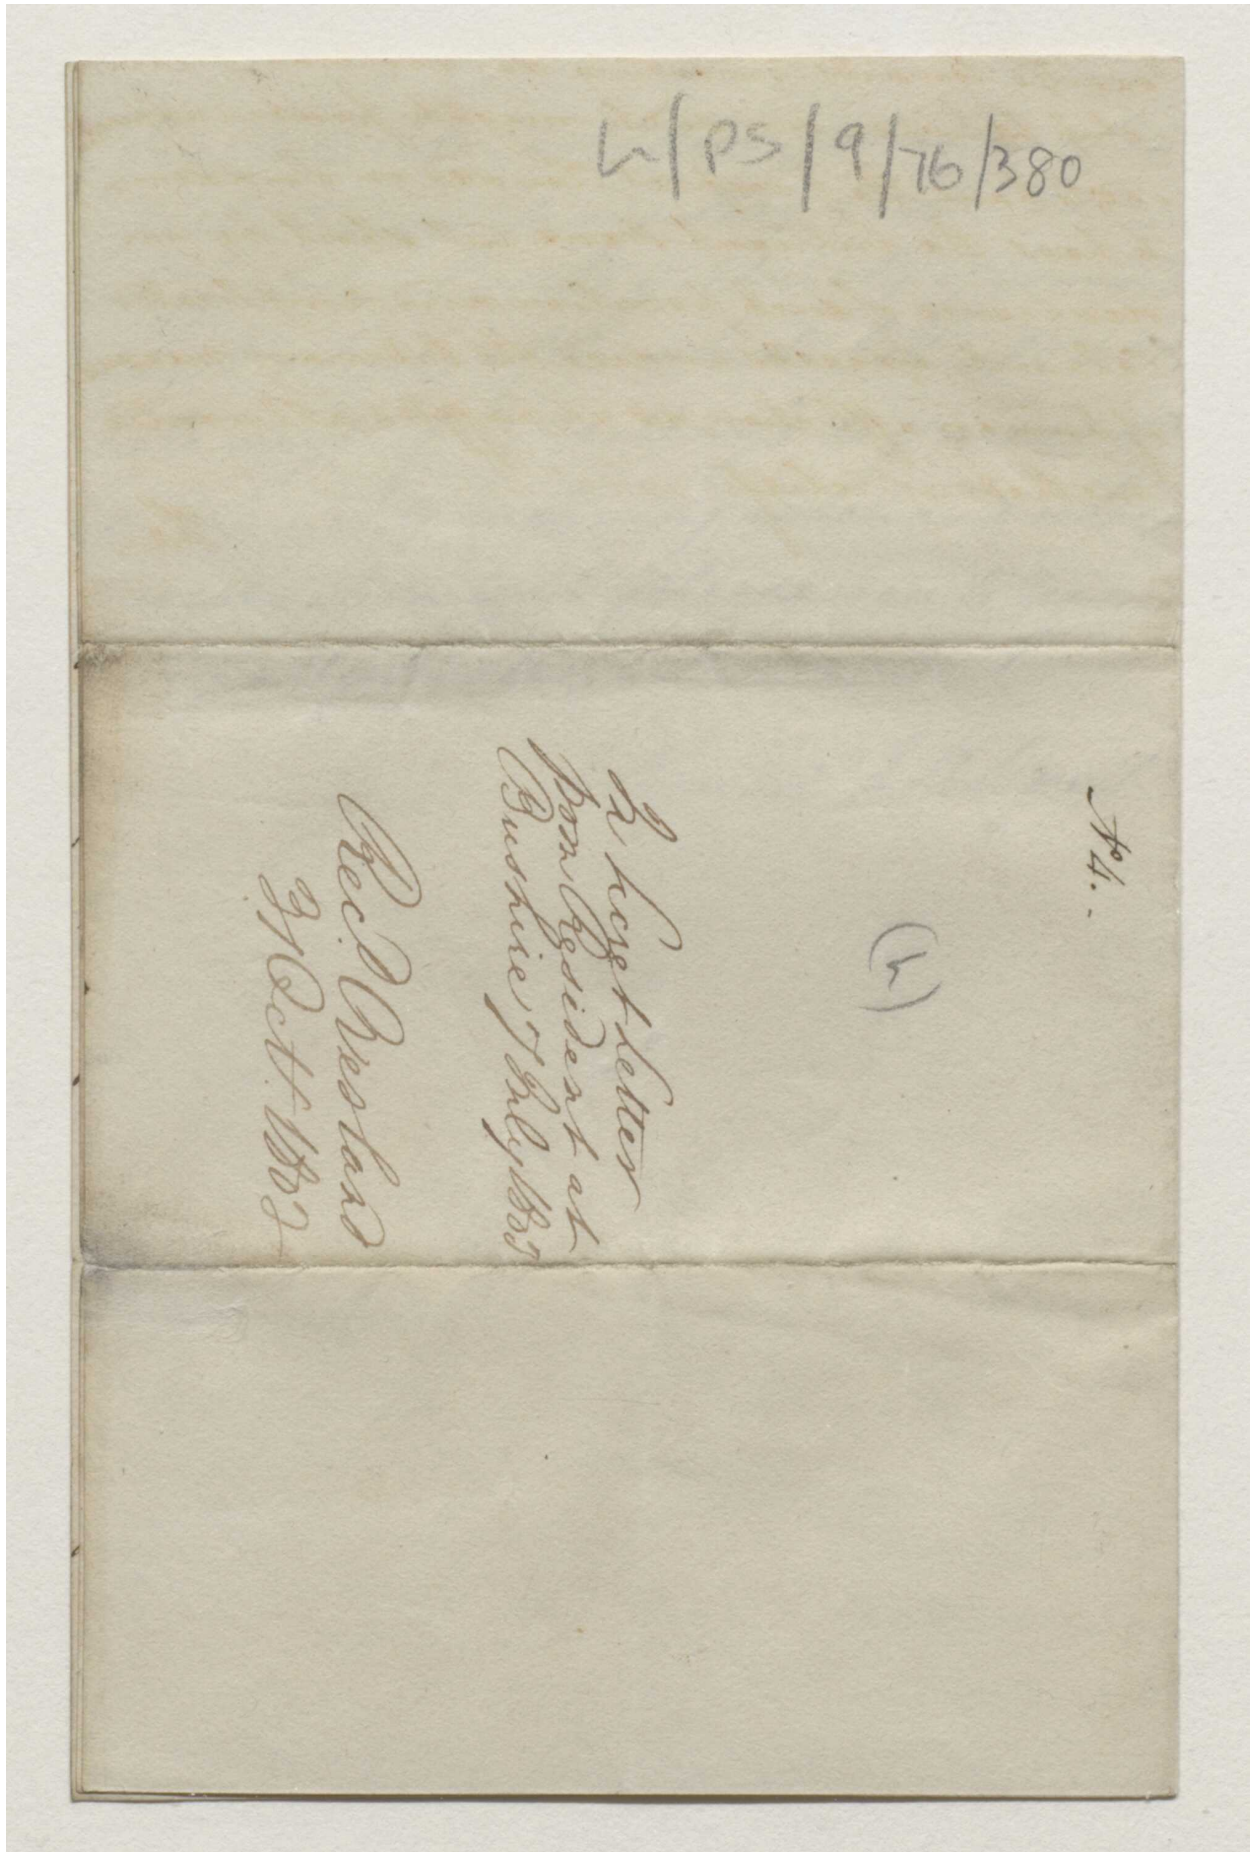 L/PS/9/76/380
No 4.
(h)
In Sec.t Letter
from Resident at
Bushire 7 July 1802
Rec.d Overland
31 Oct.r 1802